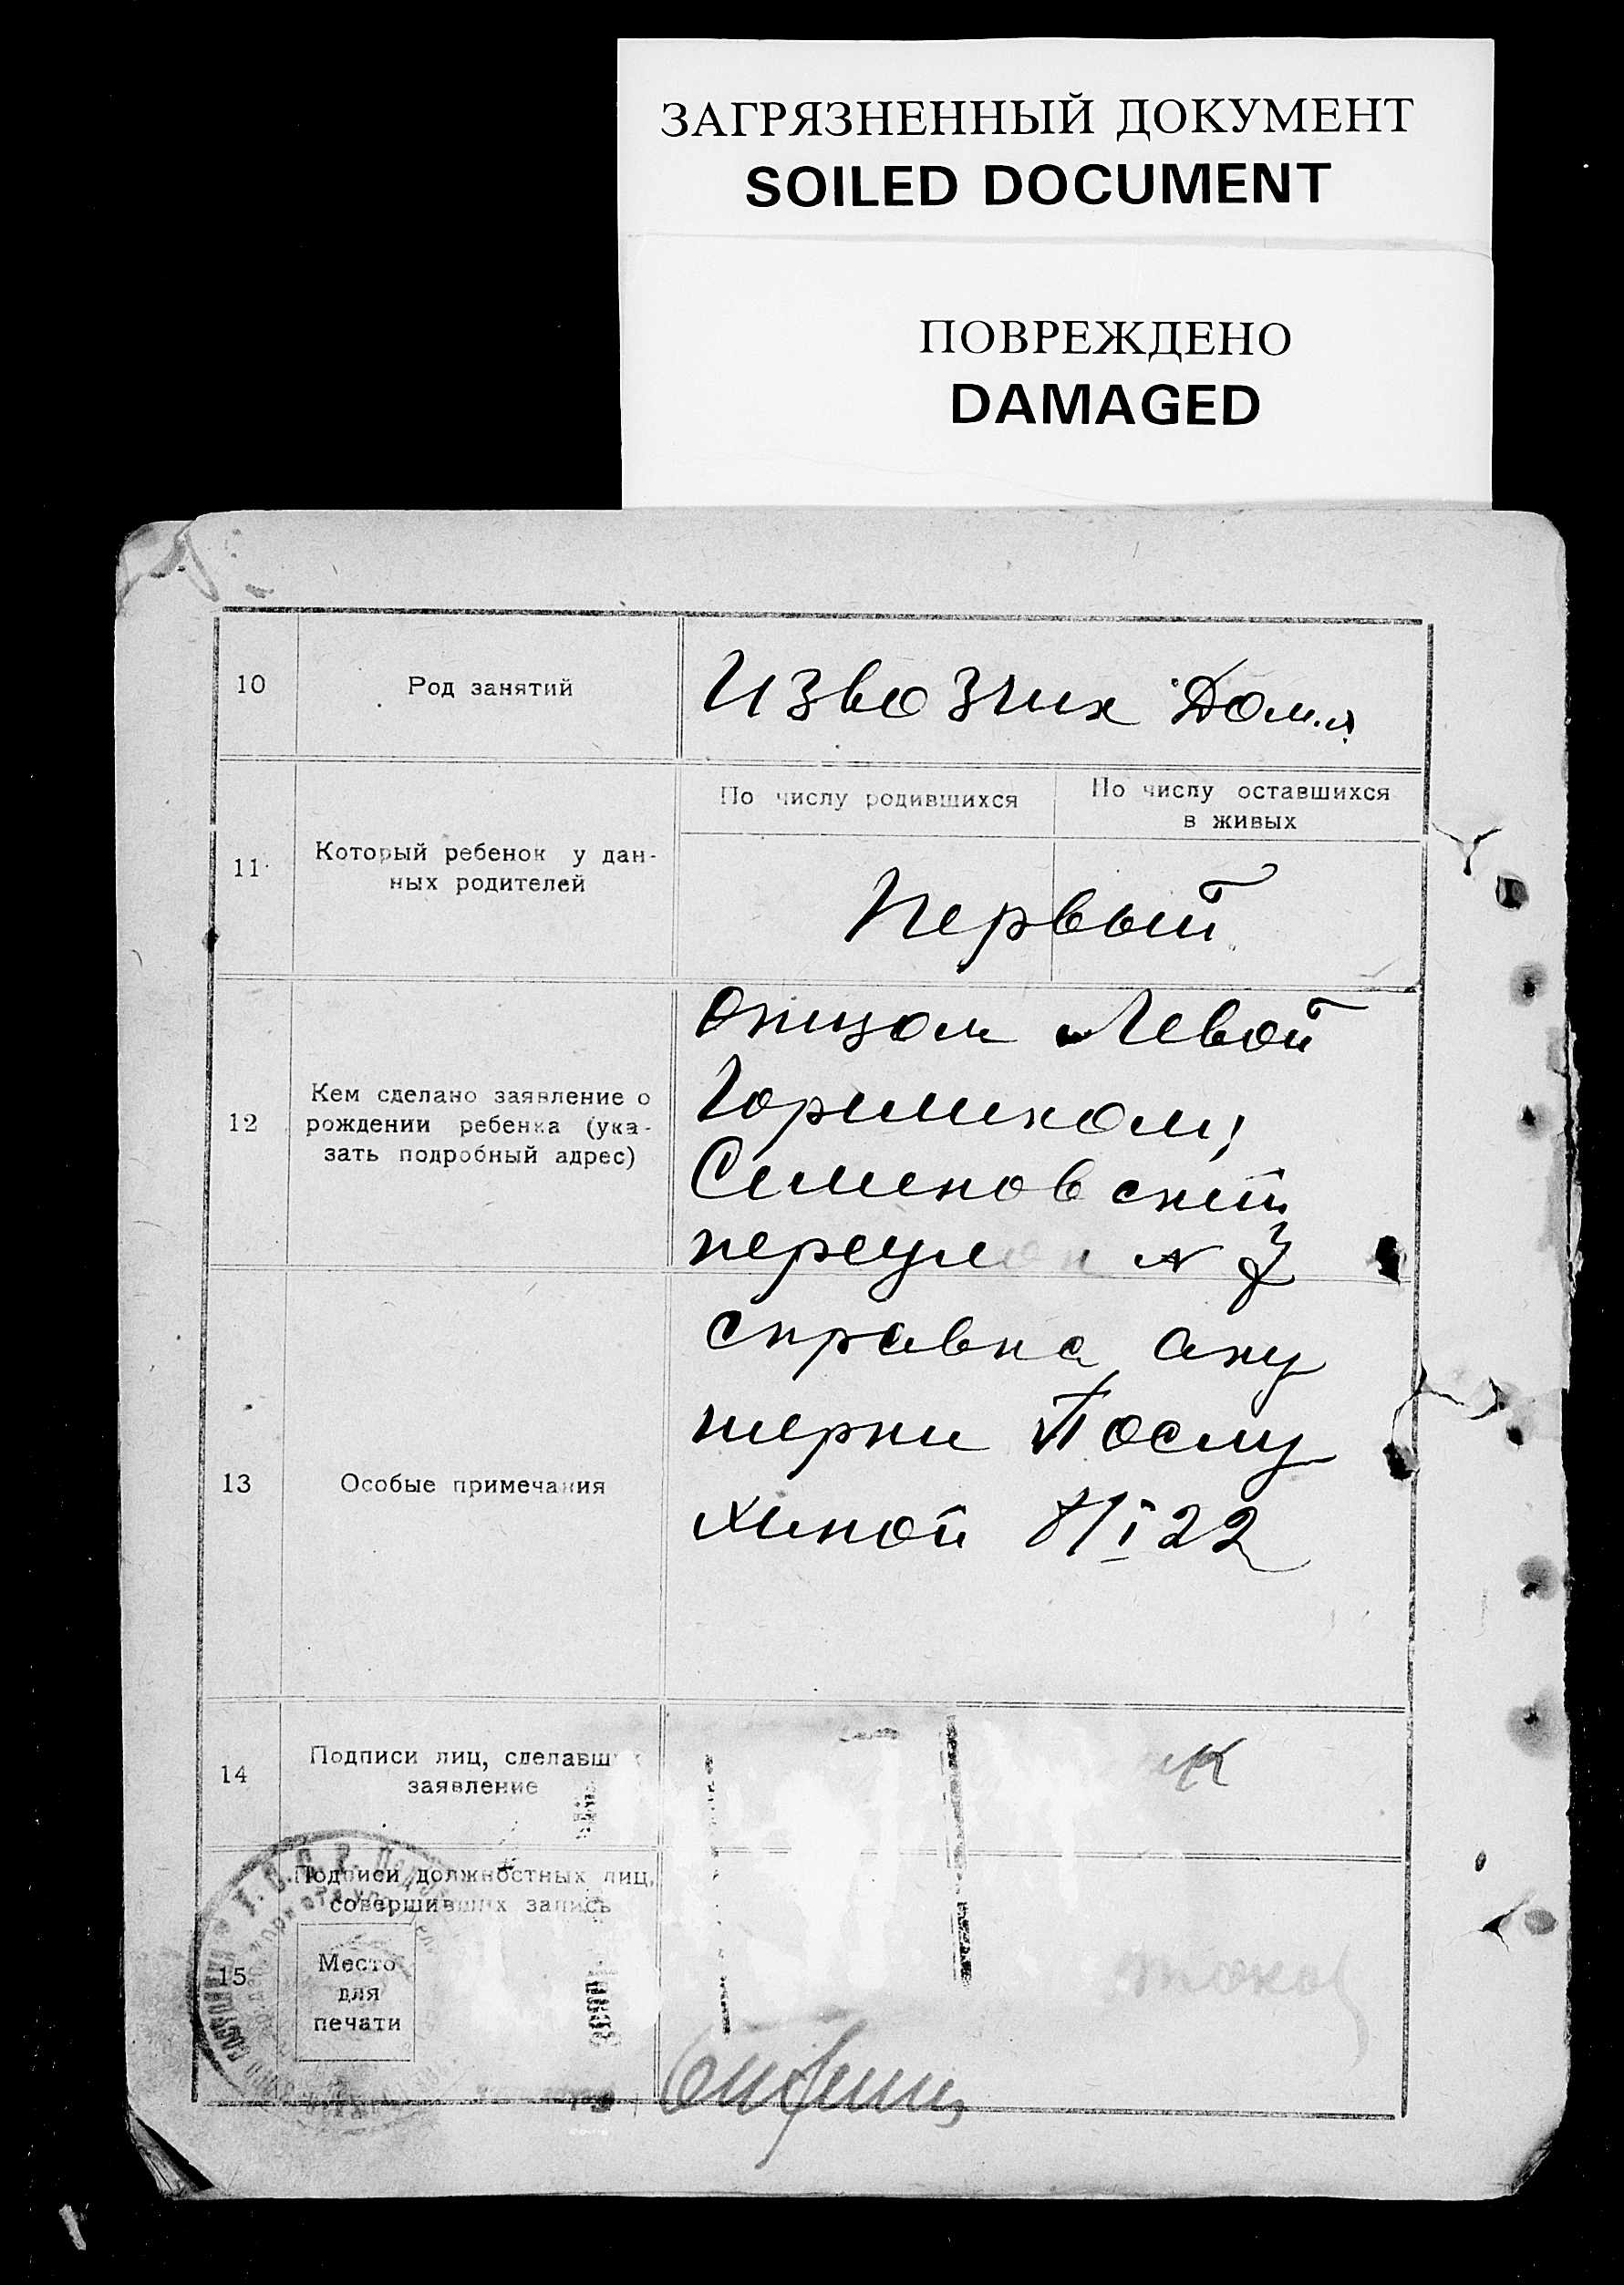 ЗАГРЯЗНЕННЫЙ ДОКУМЕНТ
SOILED DOCUMENT
ПОВРЕЖДЕНО
DAMAGED
10
Род занятий
Извозчик Дом.
11
Который ребенок у дан-
ных родителей
По числу родившихся
По числу оставшихся
в живых
Первый
12
Кем сделано заявление о
рождении ребенка (ука-
зать подробный адрес)
Отцом Левой
Горшиком,
Семеновский
переулок N
13
Особые примечания
справка аку
шерки Послу
хиной 8/I 22
14
Подписи лиц, сделавш
заявление
15
Подписи должностных лиц,
совершивших запись
Место
для
печати